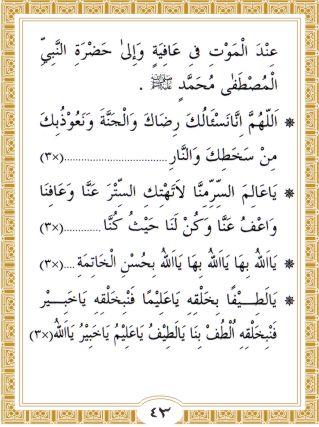 عِنْدَ الْمَوْتِ فِى عَافِيَةٍ وَإِلىٰ حَضْرَةِ النَّبِيِّ
الْمُصْطَفٰى مُحَمَّدٍ ﷺ .
* اَللّٰهُمَّ إِنَّانَسْئَالُكَ رِضَاكَ وَالْجَنَّةَ وَنَعُوْذُبِكَ
مِنْ سَخَطِكَ وَالنَّارِ.................................(٣×)
* يَاعَالِمَ السِّرِّمِنَّا لَاتَهْتِكِ السِّتْرَ عَنَّا وَعَافِنَا
وَاعْفُ عَنَّا وَكُنْ لَنَا حَيْثُ كُنَّا............(٣×)
* يَااَللهُ بِهَا يَااَللهُ بِهَا يَااَللهُ بِحُسْنِ الْخَاتِمَةِ....(٣×)
* يَالَطِيْفًا بِخَلْقِهِ يَاعَلِيْمًا فَنْبِخَلْقِهِ يَاخَبِيْر
فَنْبِخَلْقِهِ اُلْطُفْ بِنَا يَالَطِيْفُ يَاعَلِيْمُ يَاخَبِيْرُ يَااَللهُ(٣×)
٤٣